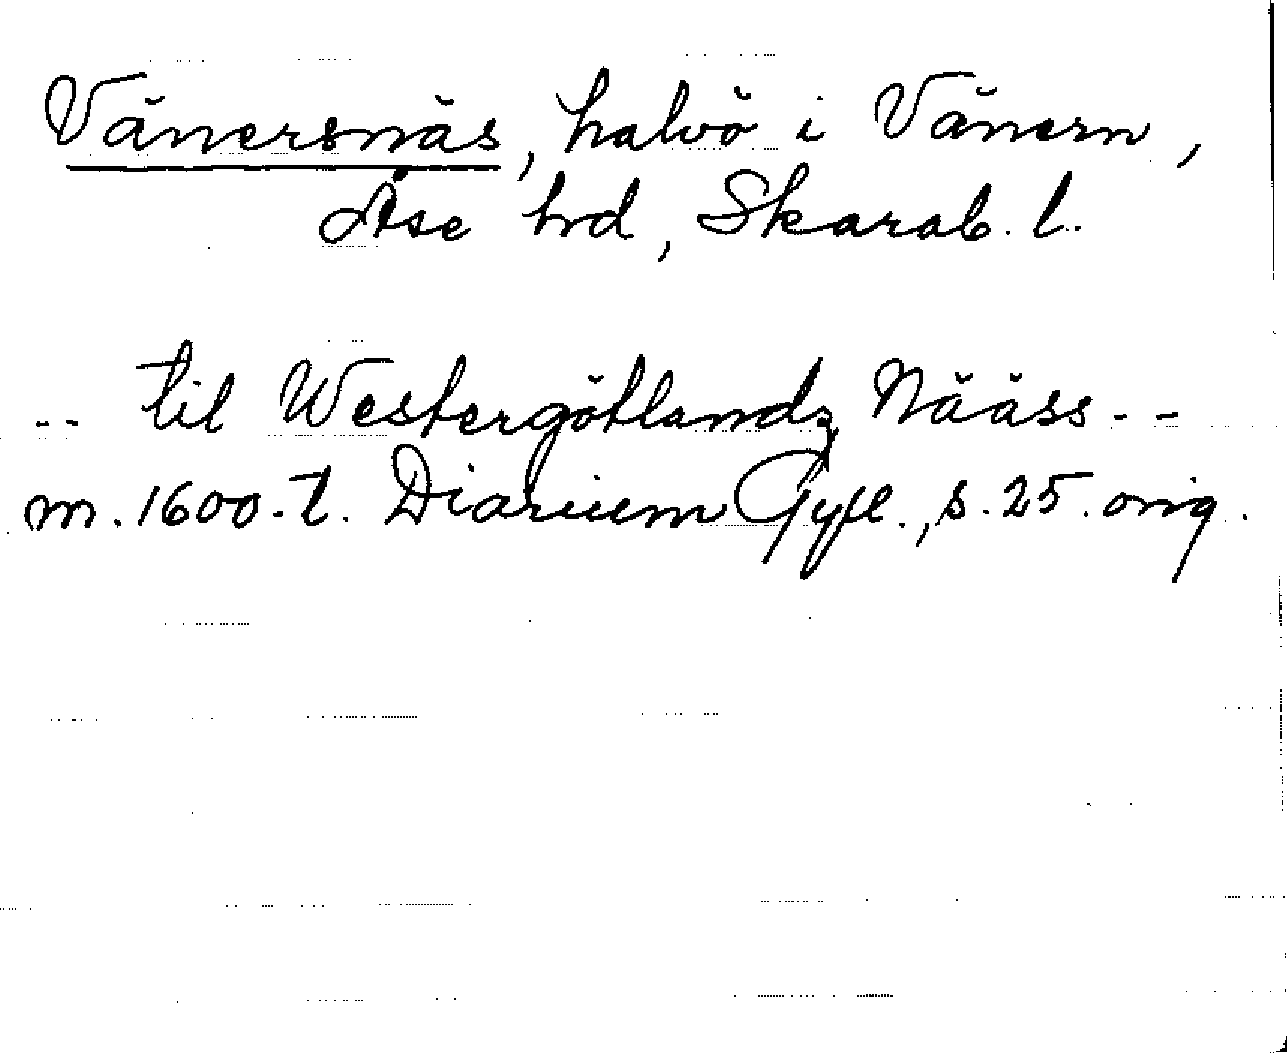 Vänersnäs, halvö i Vänern,
Åse hrd, Skarab. l.
-- til Westergötlandz Nääss --
m. 1600-t. Diarium Gyll., s. 25. orig.